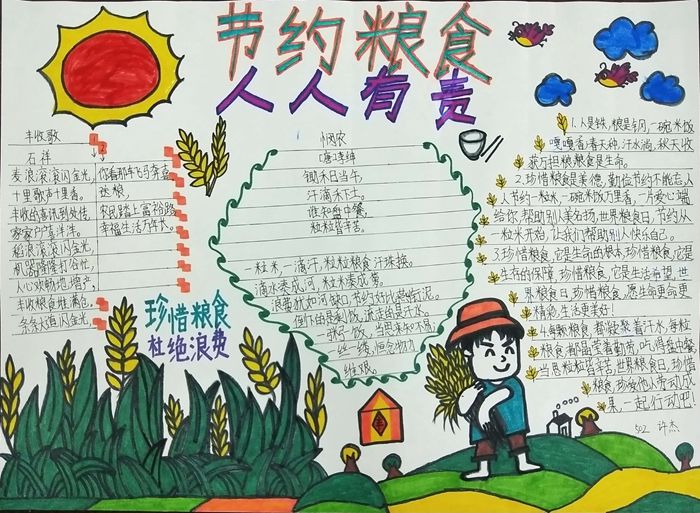 节约粮食
人人有责
丰收歌
石祥
麦浪滚滚闪金光,
十里歌声十里香。
丰收的喜讯到处传
家家户户喜洋洋。
稻浪滚滚闪金光,
机器隆隆打谷忙,
人心欢畅地增产
丰收粮食堆满仓。
条条大道闪金光
你看那车飞马奔喜
送粮
农民踏上富裕路
幸福生活万年长。
珍惜粮食
杜绝浪费
悯农
唐 李绅
锄禾日当午,
汗滴禾下土。
谁知盘中餐,
粒粒皆辛苦。
一粒米,一滴汗,粒粒粮食汗珠换。
滴水凑成河,粒米凑成箩。
浪费犹如河缺口,节约好比燕衔泥。
倒下的是剩饭,流走的是汗水。
一粥一饭,当思来处不易,
半丝半缕,恒念物力
维艰。
1.人是铁,粮是钢,一碗米饭
喷喷香;春天种,汗水淌,秋天收
获万担粮,粮食是生命。
2.珍惜粮食是美德,勤俭节约不能忘,人
人节约一粒米,一碗米饭万里香,一片爱心端
给你,帮助别人美名扬,世界粮食日,节约从
一粒米开始,让我们帮助别人快乐自己。
3.珍惜粮食,它是生命的根本,珍惜粮食,它是
生存的保障,珍惜粮食,它是生活希望,世
界粮食日,珍惜粮食,愿生命更命更
精彩,生活更美好!
4.每颗粮食,都凝聚着汗水,每粒
粮食,都晶莹着勤劳,
当思粒粒皆辛苦,世界粮食日,珍惜
粮食,珍惜他人劳动成
果,一起行动吧!
502 许杰